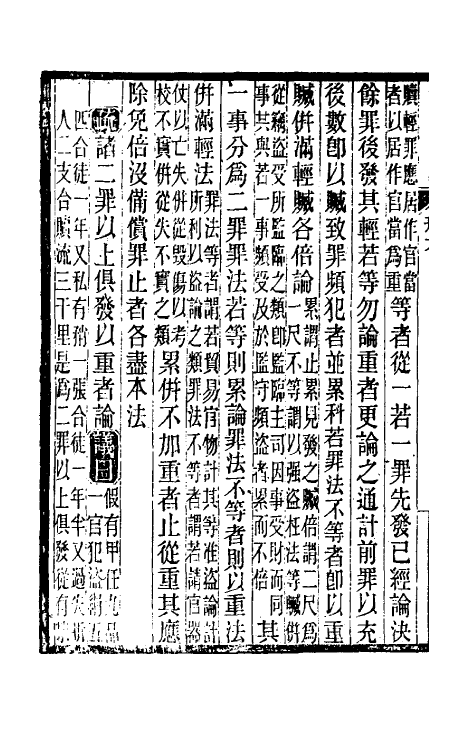 贓輕罪應居作官當
者以居作官當為重
等者從一若一罪先發已經論決
餘罪後發其輕若等勿論重者更論之通計前罪以充
後數卽以贓致罪頻犯者並累科若罪法不等者卽以重
贓併滿輕贓各倍論
累謂止累見發之贓倍謂二尺為
一尺不等謂以强盗枉法等贓併
從竊盗受所監臨之類卽監臨主司因事受財而同
事共與若一事頻受及於監守頻盗者累而不倍
其
一事分為二罪罪法若等則累論罪法不等者則以重法
併滿輕法
罪法等者謂若貿易官物計其等准盗論計
所利以盗論之類罪法不等者謂若請官器
仗以亡失併從毀傷以考
校不實併從失不實之類
累併不加重者止從重其應
除免倍沒備償罪止者各盡本法
諸二罪以上俱發以重者論
議曰
假有甲任九品
一官犯盗絹五
匹合徒一年又私有矟一張合徒一年半又過失折
人二支合贖流三千里是為二罪以上俱發從有